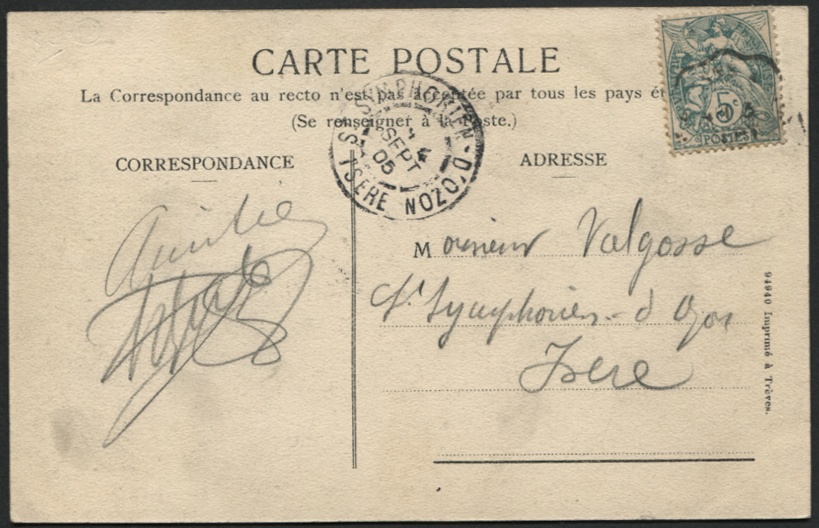 CARTE POSTALE
La Correspondance au recto n'est pas acceptée par tous les pays
(Se renseigner à la Poste.)
CORRESPONDANCE
ADRESSE
Amitiés
Monsieur Valgosse
St Symphorien-d'Ozon
Isère
94940 Imprimé à Trèves.
5c
POSTES
ST SYMPHORIEN-D'OZON ISERE
SEPT
05